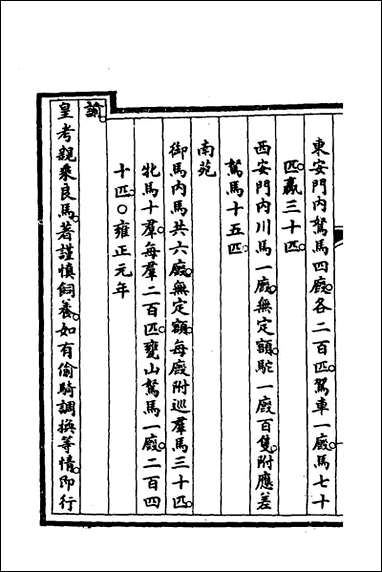 東安門内駑馬四廄各二百匹駕車一廄馬七十
匹驘三十匹
西安門内川馬一廄無定額駝一廄百隻附應差
駑馬十五匹
南苑
御馬内馬共六廄無定額每廄附巡羣馬三十匹
牝馬十羣每羣二百匹甕山駑馬一廄二百四
十匹○雍正元年
諭
皇考親乘良馬著謹慎飼養如有偷騎調換等情即行